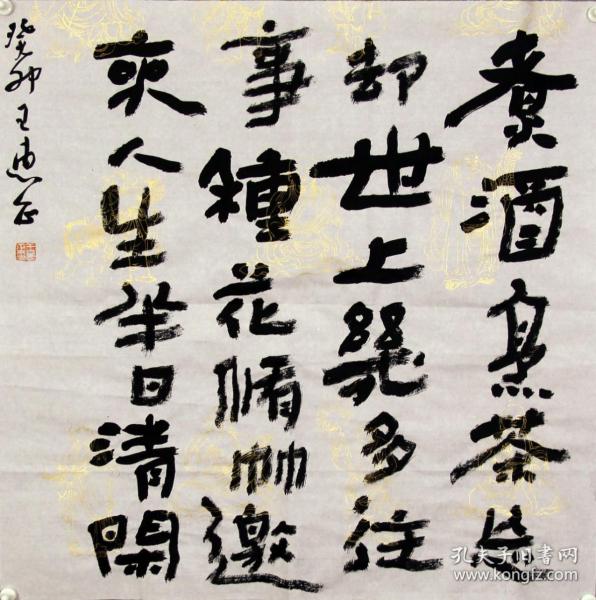 煮酒烹茶忘
却世上幾多往
事種花脩竹邀
來人生半日清閑
癸卯王
孔夫子旧书网
www.kongfz.com